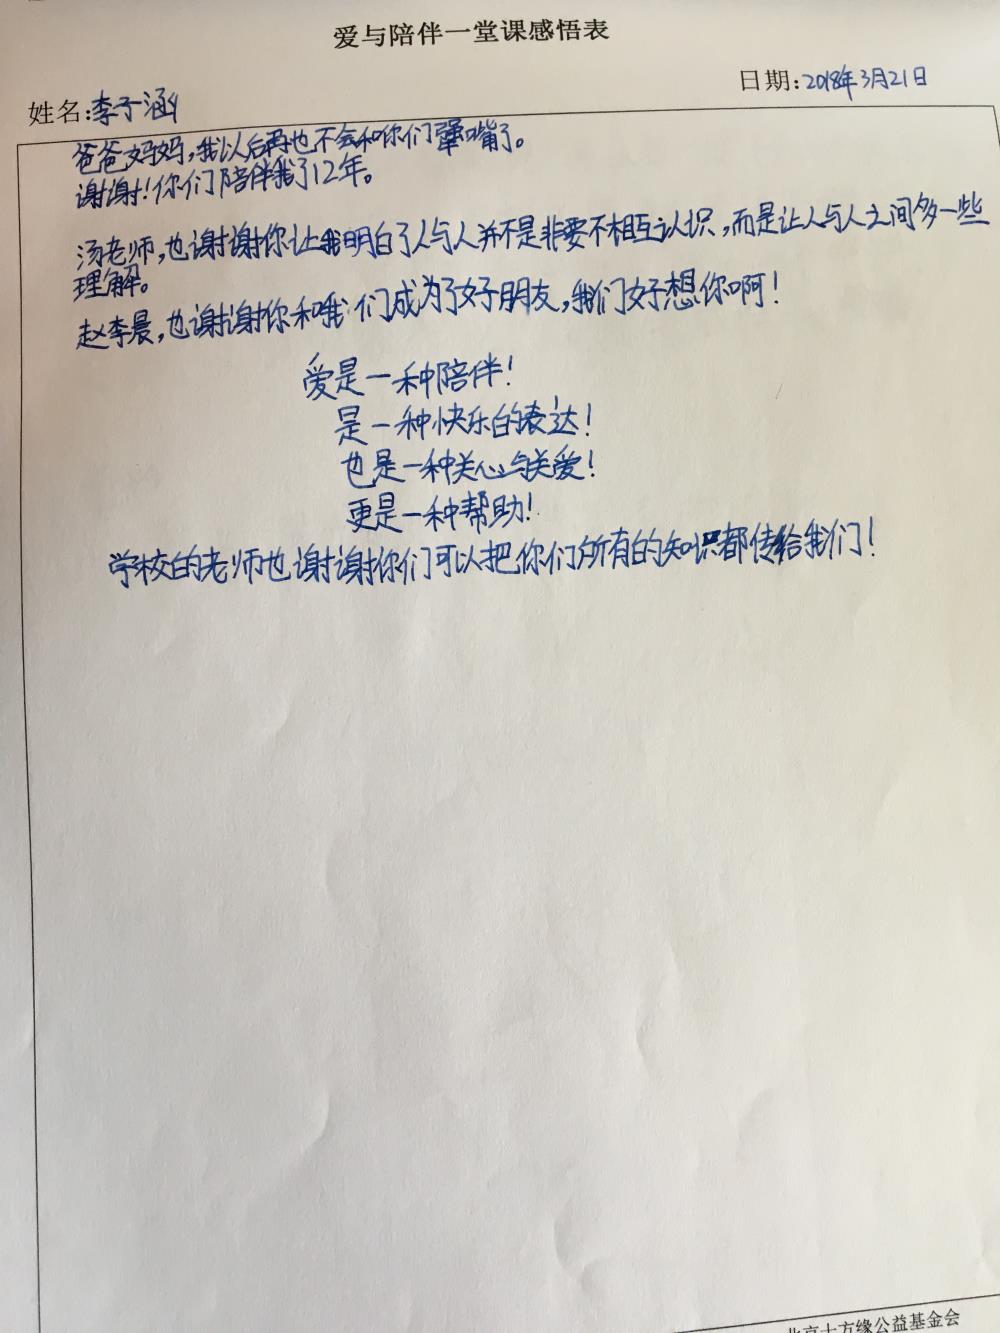 爱与陪伴一堂课感悟表
姓名:李子涵
日期:2018年3月21日
爸爸妈妈,我以后再也不会和你们犟嘴了。
谢谢!你们陪伴我了12年。
汤老师,也谢谢你让我明白了人与人并不是非要不相互认识,而是让人与人之间多一些
理解。
赵李晨,也谢谢你和我们成为了好朋友,我们好想你啊!
爱是一种陪伴!
是一种快乐的表达!
也是一种关心与关爱!
更是一种帮助!
学校的老师也谢谢你们可以把你们所有的知识都传给我们!
北京十方缘公益基金会